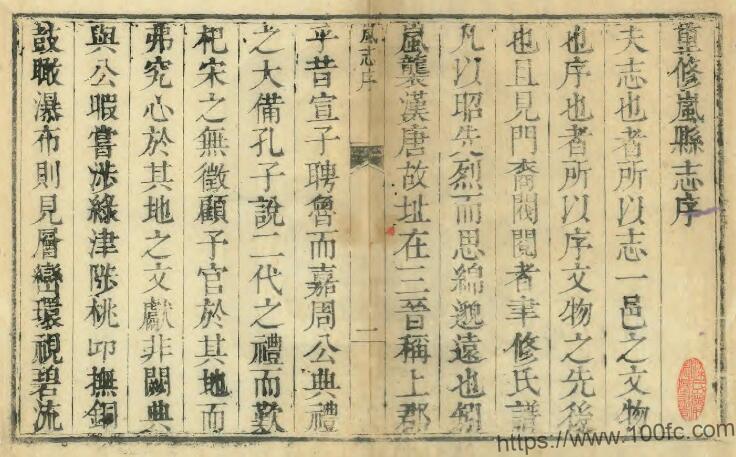 重修嵐縣志序
夫志也者所以志一邑之文物
也序也者所以序文物之先後
也且見門裔閥閱者聿修氏譜
凡以昭先烈而思綿邈遠也矧
嵐襲漢唐故址在三晉稱上郡
嵐志序
一
乎昔宣子聘魯而嘉周公典禮
之大備孔子說二代之禮而歎
杞宋之無徵顧予官於其地而
弗究心於其地之文獻非闕典
與公暇嘗涉綠津陟桃卬撫銅
鼓瞰瀑布則見層巒環視碧流
https://www.100fc.com